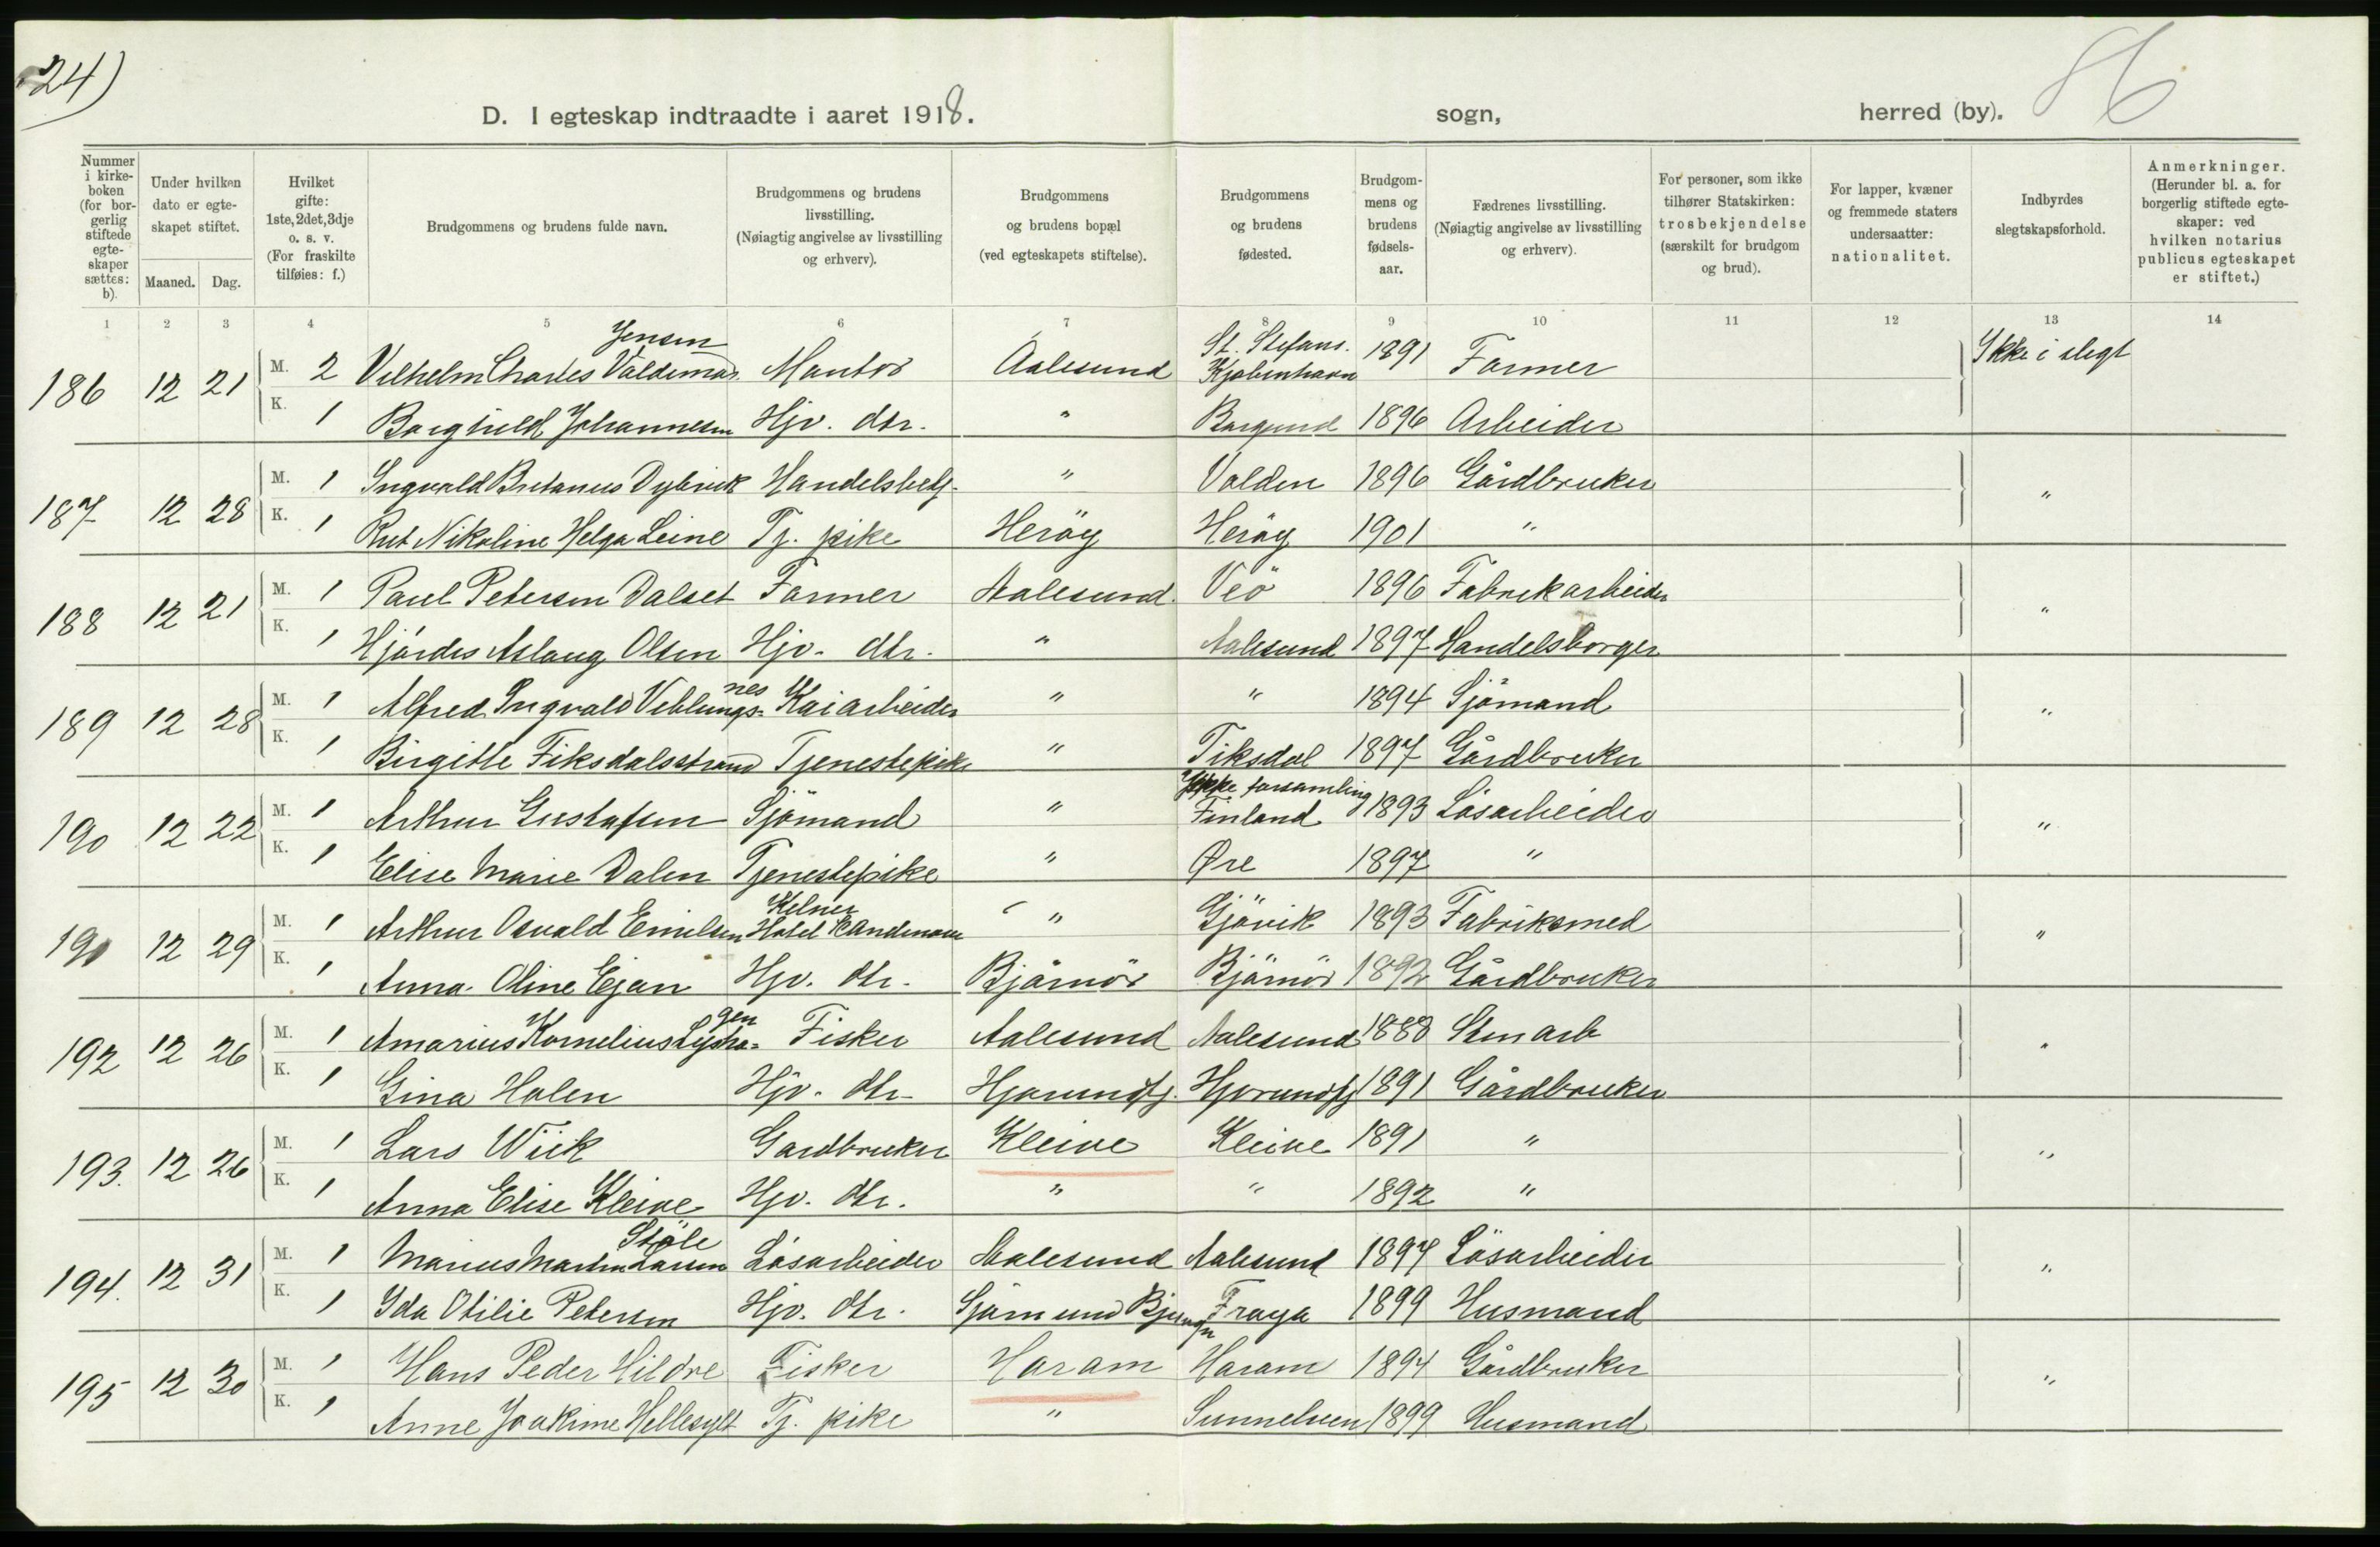 24)
86
D. I egteskap indtraadte i aaret 1918. sogn, herred (by).
Nummer i kirkeboken (for borgerlig stiftede egteskaper sættes: b).
Under hvilken dato er egteskapet stiftet.
Maaned. Dag.
Hvilket gifte: 1ste, 2det, 3dje o. s. v. (For fraskilte tilføies: f.)
Brudgommens og brudens fulde navn.
Brudgommens og brudens livsstilling. (Nøiagtig angivelse av livsstilling og erhverv).
Brudgommens og brudens bopæl (ved egteskapets stiftelse).
Brudgommens og brudens fødested.
Brudgommens og brudens fødselsaar.
Fædrenes livsstilling. (Nøiagtig angivelse av livsstilling og erhverv).
For personer, som ikke tilhører Statskirken: trosbekjendelse (særskilt for brudgom og brud).
For lapper, kvæner og fremmede staters undersaatter: nationalitet.
Indbyrdes slegtskapsforhold.
Anmerkninger. (Herunder bl. a. for borgerlig stiftede egteskaper: ved hvilken notarius publicus egteskapet er stiftet.)
1 2 3 4 5 6 7 8 9 10 11 12 13 14
Jensen St. Stefans.
186 12 21 M. 2 Vilhelm Charles Valdemar Montør Aalesund Kjøbenhavn 1891 Farmer Ikke i slegt
K. 1 Borghild Johannesen Hjv. dtr. " Borgund 1896 Arbeider
187 12 28 M. 1 Ingvald Dybvik Handelsbetj. " Volden 1896 Gårdbruker "
K. 1 Rut Nikoline Helga Leine Tj. pike Herøy Herøy 1901 "
188 12 21 M. 1 Paul Petersen Dalset Farmer Aalesund Veö 1896 Fabrikarbeider "
K. 1 Hjördis Aslaug Olsen Hjv. dtr. " Aalesund 1897 Handelsborger
189 12 28 M. 1 Alfred Ingvald Veblungsnes Kaiarbeider " " 1894 Sjömand "
K. 1 Birgitte Fiksdalsstrand Tjenestepike " Fiksdal 1897 Gårdbruker
forsamling
190 12 22 M. 1 Arthur Gustafsen Sjömand " Finland 1893 Lösarbeider "
K. 1 Elise Marie Dalen Tjenestepike " Øre 1897 "
Kelner
191 12 29 M. 1 Arthur Osvald Emilsen Hotel " Gjövik 1893 Fabriksmed "
K. 1 Anna Oline Ejan Hjv. dtr. Bjørnör Bjørnör 1892 Gårdbruker
192 12 26 M. 1 Amarius Kornelius Fisker Aalesund Aalesund 1888 Stenarb "
K. 1 Gina Holen Hjv. dtr. Hjørundfj. Hjørundfj 1891 Gårdbruker
193. 12 26 M. 1 Lars Wiik Gardbruker Kleive Kleive 1891 " "
K. 1 Anna Elise Kleive Hjv. dtr. " " 1892 "
Støle
194. 12 31 M. 1 Marius Martin Larsen Lösarbeider Aalesund Aalesund 1897 Lösarbeider "
K. 1 Ida Otilie Petersen Hjv. dtr. 1899 Husmand
195 12 30 M. 1 Hans Peder Hildre Fisker Haram Haram 1894 Gårdbruker "
K. 1 Anne Joakime Hellesylt Tj. pike " Sunnelven 1899 Husmand